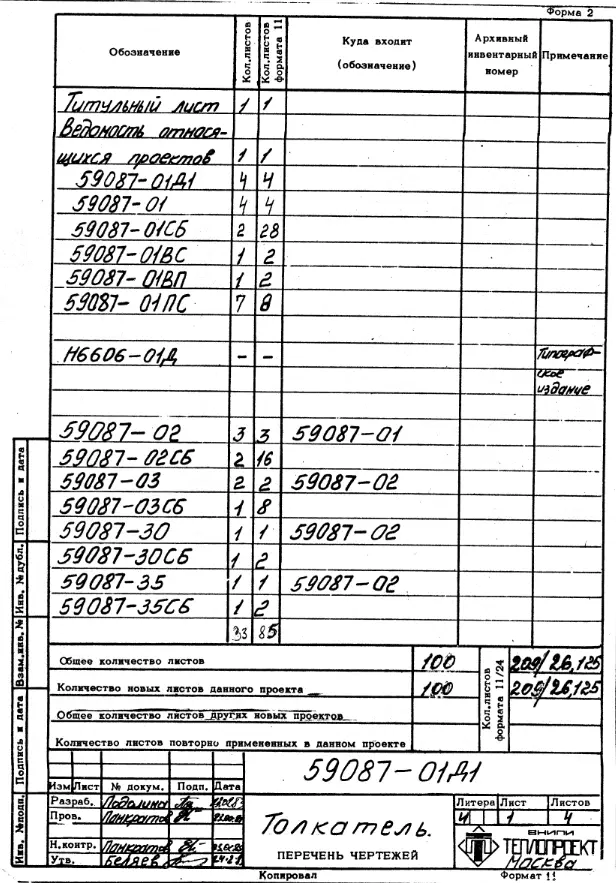 Форма 2
Обозначение Кол.листов Кол.листов формата 11 Куда входит (обозначение) Архивный инвентарный номер Примечание
Титульный лист 1 1
Ведомость относя-
щихся проектов 1 1
59087-01Д1 4 4
59087-01 4 4
59087-01СБ 2 28
59087-01ВС 1 2
59087-01ВП 1 2
59087-01ПС 7 8
Н6606-01Д - - Типограф-
ское
издание
59087-02 3 3 59087-01
59087-02СБ 2 16
59087-03 2 2 59087-02
59087-03СБ 1 8
59087-30 1 1 59087-02
59087-30СБ 1 2
59087-35 1 1 59087-02
59087-35СБ 1 2
33 85
Общее количество листов 100 Кол.листов формата 11/24 209/26,125
Количество новых листов данного проекта 100 209/26,125
Общее количество листов других новых проектов
Количество листов повторно примененных в данном проекте
Инв. №подл. Подпись и дата Взам.инв. № Инв. №дубл. Подпись и дата
59087-01Д1
Изм Лист № докум. Подп. Дата
Разраб. Подолина
Пров. Панкратов
Н.контр. Панкратов
Утв. Беляев
Толкатель.
ПЕРЕЧЕНЬ ЧЕРТЕЖЕЙ
Литера Лист Листов
И 1 4
ВНИПИ
ТЕПЛОПРОЕКТ
МОСКВА
Копировал Формат 11